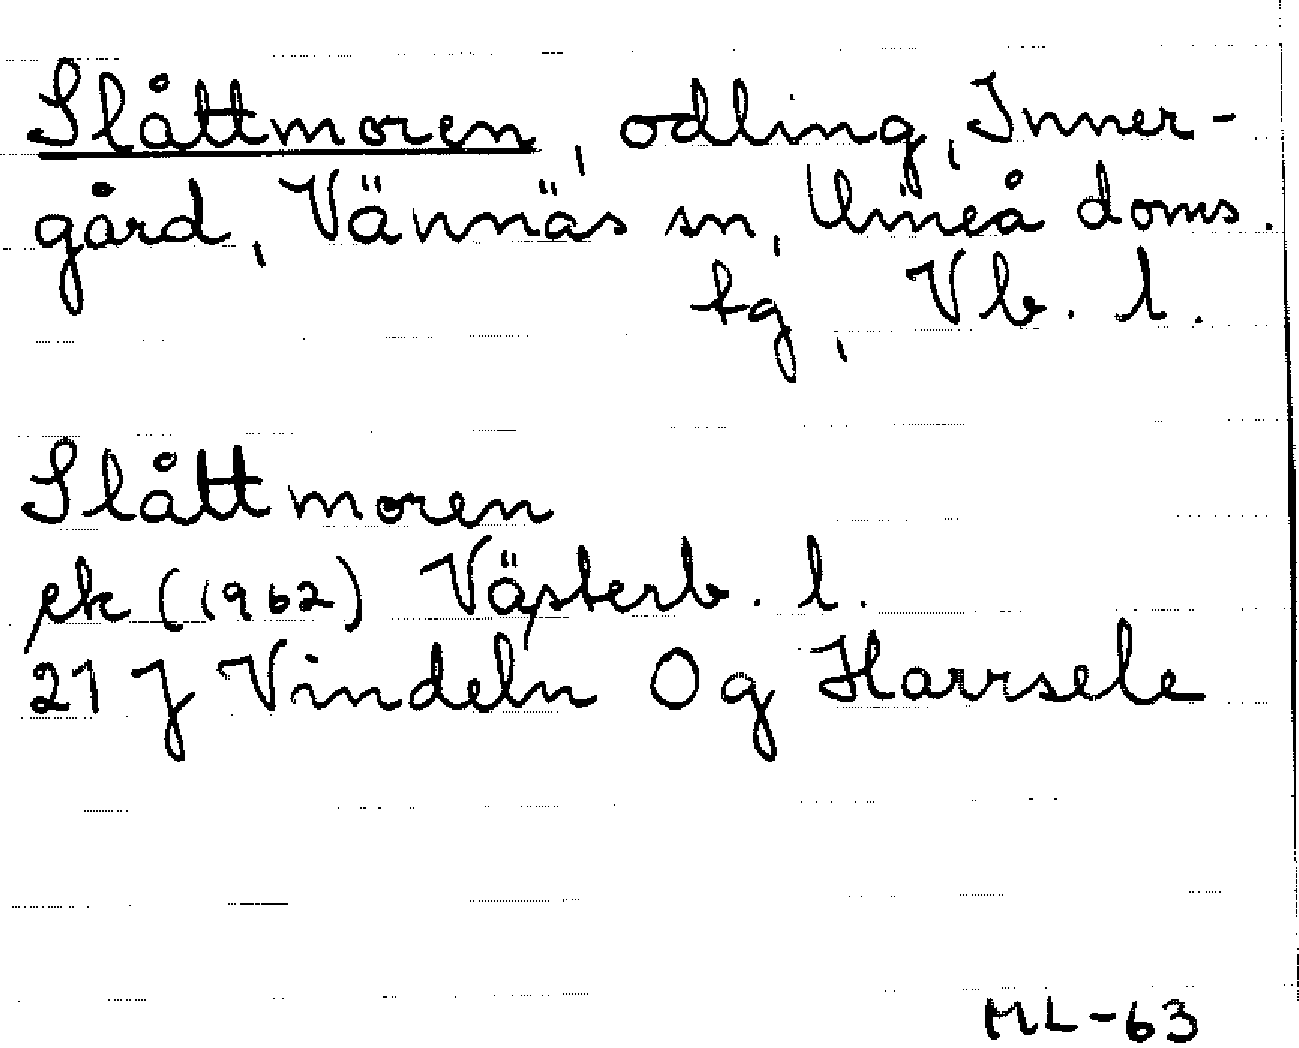 Slåttmoren, odling, Inner-
gård, Vännäs sn, Umeå doms.
tg, Vb. l.
Slåttmoren
ek (1962) Västerb. l.
21 J Vindeln Og Harrsele
ML-63